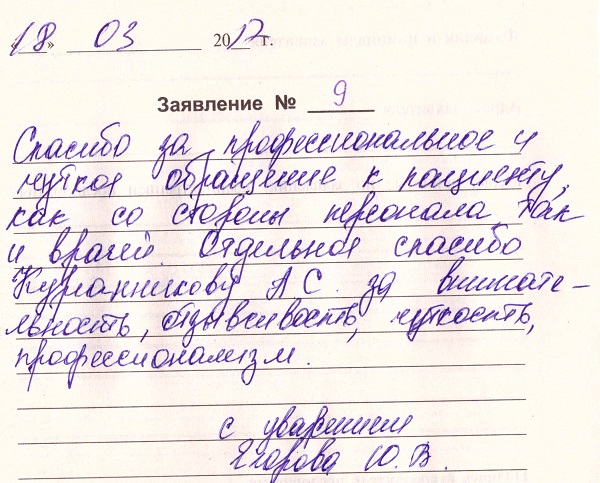 «18» 03 2017 г.
Заявление № 9
Спасибо за профессиональное и
чуткое обращение к пациенту,
как со стороны персонала, так
и врачей. Отдельное спасибо
Курганникову А С. за внимате-
льность, отзывчивость, чуткость,
профессионализм.
с уважением
Егорова Ю. В.